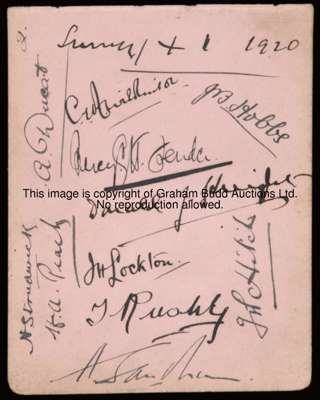 Surrey / X 1 1920
A. Ducat
C.T.A. Wilkinson
J B Hobbs
Percy G H Fender
This image is copyright of Graham Budd Auctions Ltd.
No reproduction allowed.
H Strudwick
W. A. Peach
JH Lockton
T Rushby
A Sandham